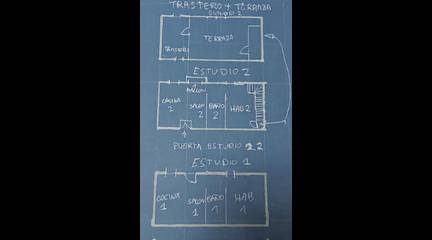 TRASTERO + TERRAZA
ESTUDIO 2
TERRAZA
TRASTERO
ESTUDIO 2
BALCON
COCINA 2
SALON 2
BAÑO 2
HAB 2
PUERTA ESTUDIO 1.2
ESTUDIO 1
COCINA 1
SALON 1
BAÑO 1
HAB 1